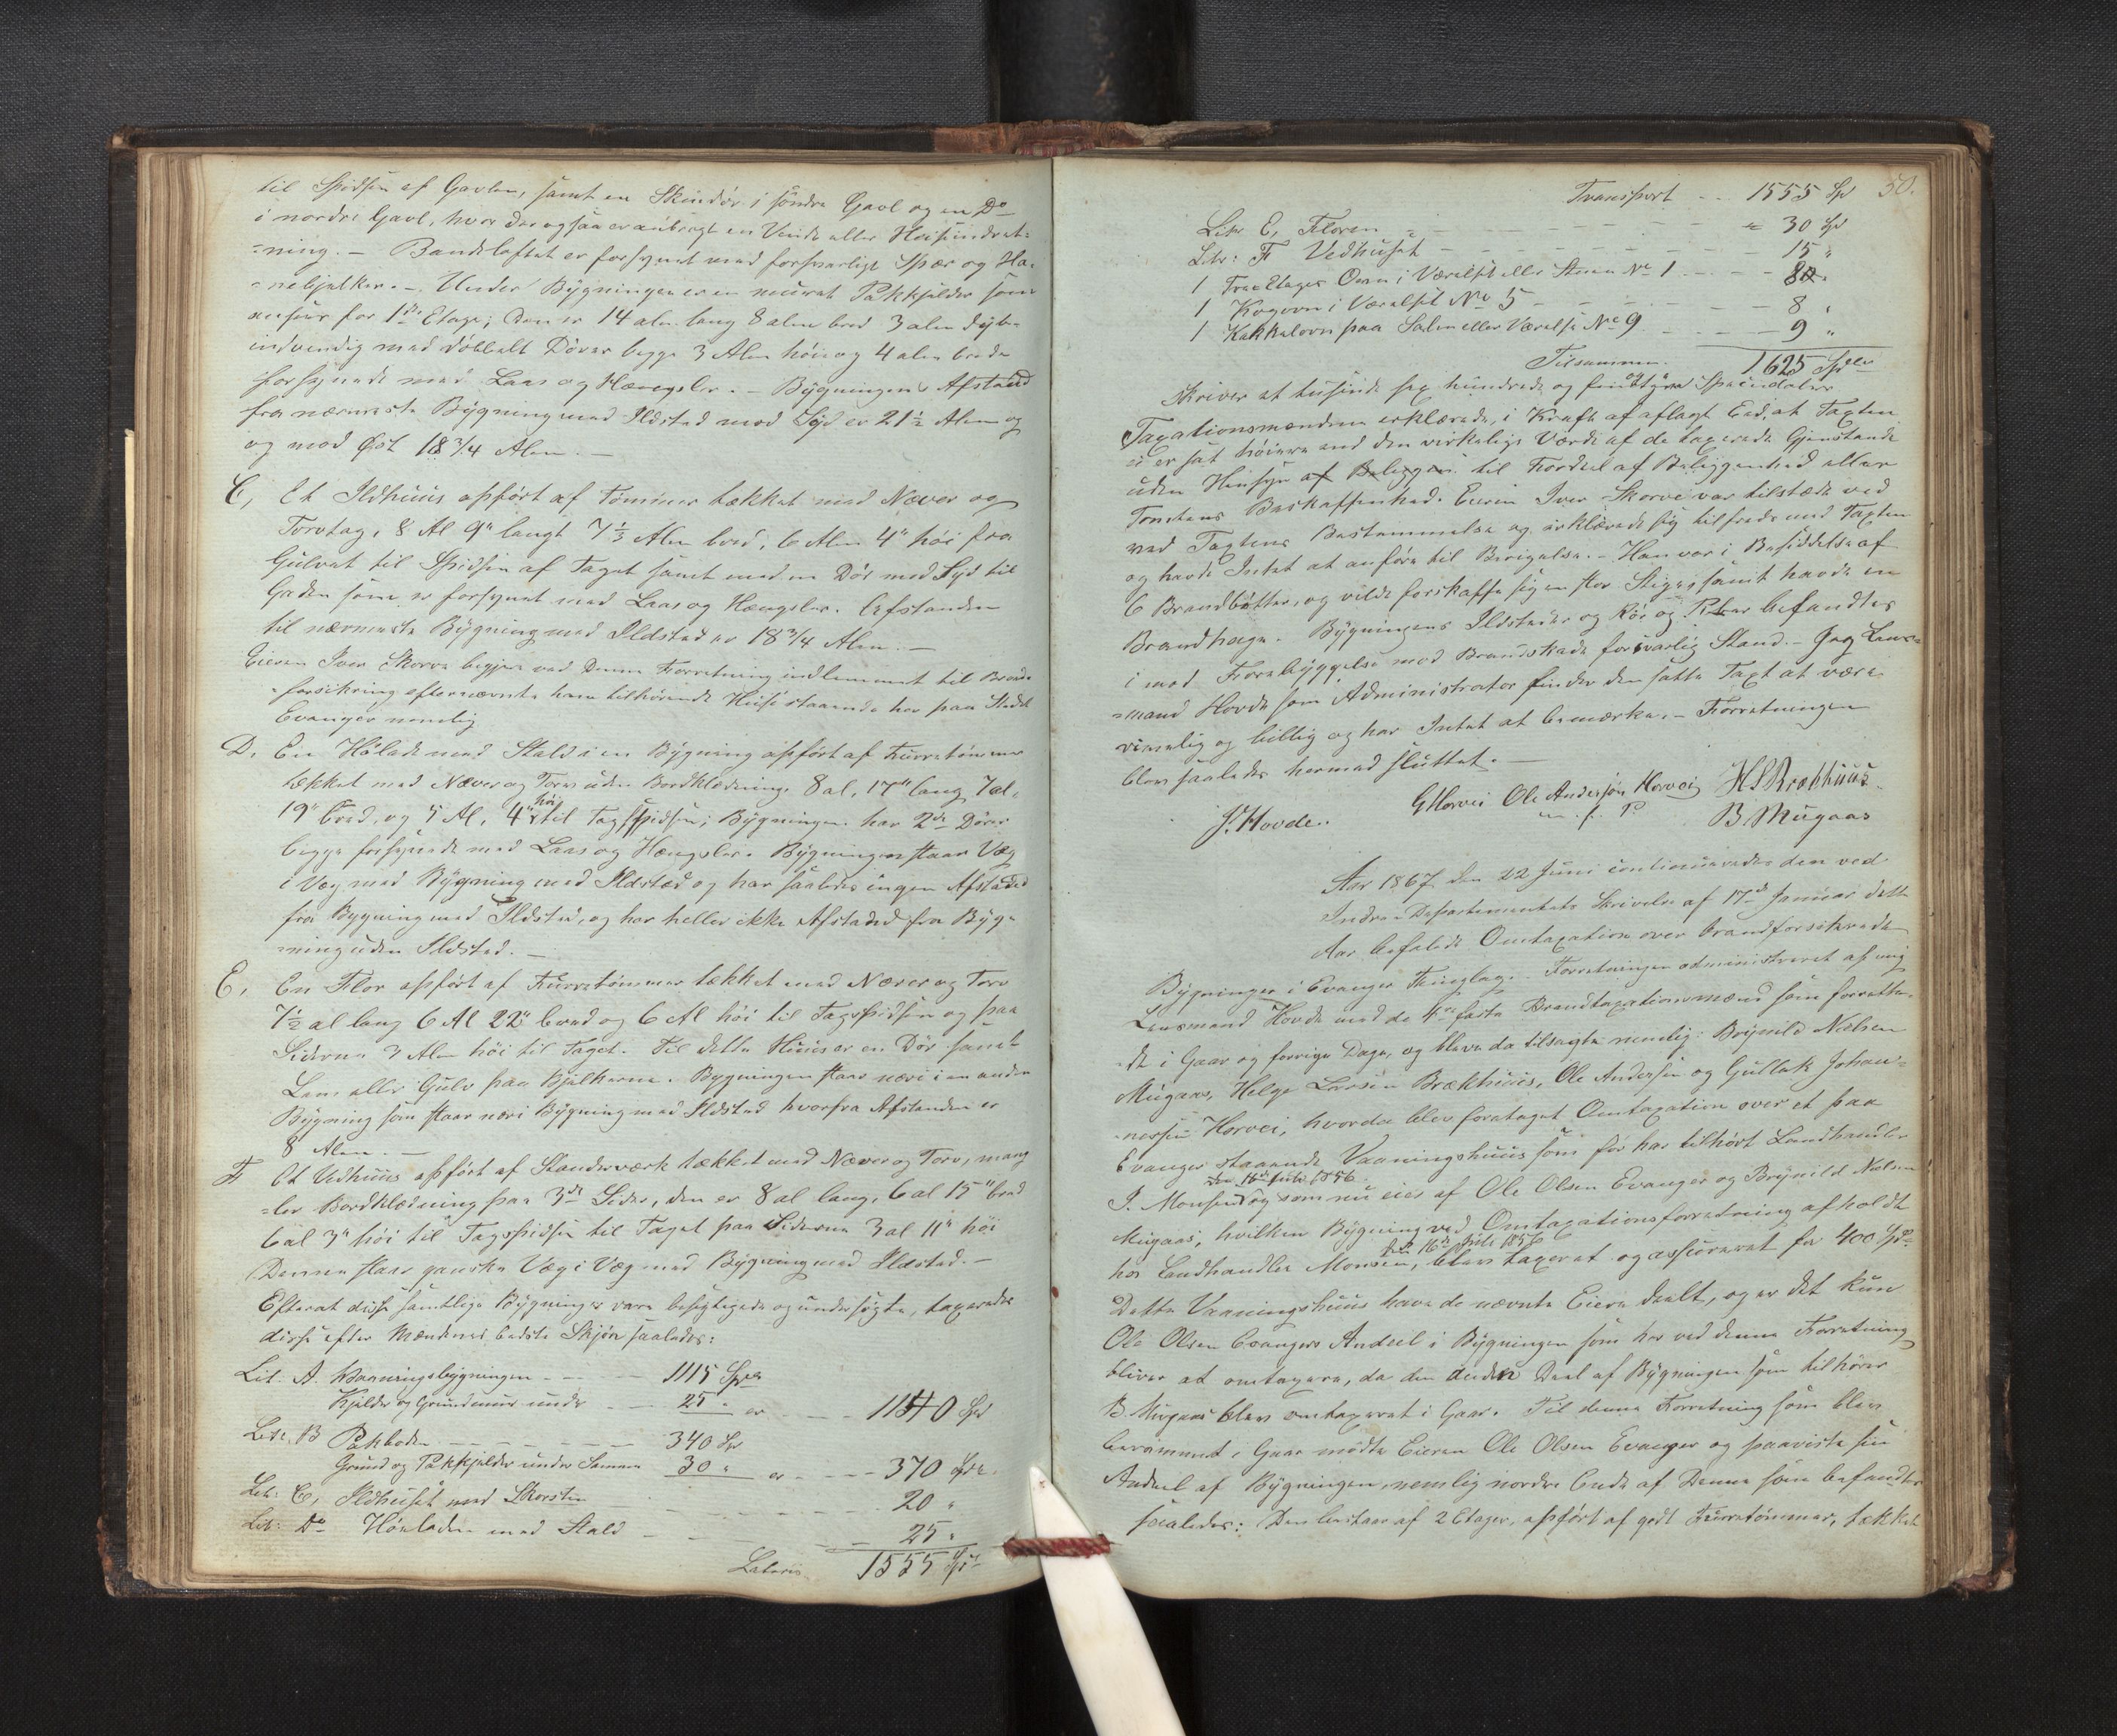 til Spidsen af Gavlen, samt en Skindör i söndre Gavl og en Do
i nordre Gavl, hvor der ogsaa er anbragt en Vinde eller Heiseindret-
-ning. - Bandloftet er forsynet med forsvarlige Spær og Ha-
-nebjelker. - Under Bygningen er en muret Pakkjelder som
for 1ste Etage; Den er 14 alen lang 8 alen bred 3 alen dyb
indvendig med dobbelt Döver begge 3 Alen höie og 4 alen brede
forsynede med Laas og Hængsler. - Bygningens Afstand
fra nærmeste Bygning med Ildsted mod Syd er 21 1/2 Alen og
og mod Øst 18 3/4 Alen. -
C, Et Ildhuus opfört af Tömmer tækket med Næver og
Torvtag, 8 Al 9" langt 7 1/3 Alen bred, 6 Alen 4" höi fra
Gulvet til Spidsen af Taget samt med en Dör mod Syd til
Gaden som er forsynet med Laas og Hængsler. Afstanden
til nærmeste Bygning med Ildsted er 18 3/4 Alen. -
Eieren Iver Skorve begjerer ved denne Forretning indlemmet til Brand-
-forsikring efternævnte ham tilhörende Huse staaende her paa Stedet
Evanger nemlig
D. En Hölade med Stald i en Bygning opfört af Furretömmer
tækket med Næver og Torv uden Bordklædning. 8 al, 17" lang 7 al,
19" bred, og 5 Al, 4" höi til Tagspidsen; Bygningen har 2de Döre
begge forsynede med Laas og Hængsler. Bygningen staar Væg
i Væg med Bygning med Ildsted og har saaledes ingen Afstand
fra Bygning med Ildsted, og har heller ikke Afstand fra Byg-
-ning uden Ildsted. -
E, En Flor opfört af Furretömmer tækket med Næver og Torv
7 1/2 al lang 6 Al 22" bred og 6 Al höi til Tagspidsen og paa
Siderne 3 Alen höi til Taget. Til dette Huus er en Dör samt
Lem eller Gulv paa Bjelkerne. Bygningen staar nær i en anden
Bygning som staar nær i Bygning med Ildsted hvorfra Afstanden er
8 Alen. -
F Et Vedhuus opfört af Standerværk tækket med Næver og Torv, mang
-ler Bordklædning paa 3de Sider, den er 8 al lang, 6 al 15" bred
6 al 3" höi til Tagspidsen til Taget paa Siderne 3 al 11" höi
Denne staar ganske Væg i Væg med Bygning med Ildsted. -
Efterat disse samtlige Bygninger vare besigtigede og undersögte, taxeredes
disse efter Mændenes bedste Skjön saaledes:
Lit. A. Vaaningsbygningen - - - 1115 Spd
Kjelder og Grundmuur under - - 25 " er - - - 1140 Spd
Litr. B Pakboden - - - 340 Spd
Grund og Pakkjelder under Samme 30 " er - - - 370 Spd
Litr: C, Ildhuset med Skorsten - - - 20 "
Lit: D Höeladen med Stald - - - 25 "
Lateris 1555 Spd
50.
Transport - - 1555 Spd
Litr E, Floren - - - 30 Spd
Litr: F Vedhuset - - - 15 "
1 Tre Etages Ovn i Værelset eller Stuen No 1 - - - 8 "
1 Kogovn i Værelset No 5 - - - 8 "
1 Kakkelovn paa Salen eller Værelse No 9 - - - 9 "
Tilsammen. 1625 Spdlr
skriver et tusinde sex hundrede og fem og tyve Speciedaler
Taxationsmændene erklærede, i Kraft af aflagt Eed, at Taxten
ei er sat höiere end den virkelige Værdi af de taxerede Gjenstande
uden Hensyn af Beliggen. til Fordeel af Beliggenhed eller
Tomtens Beskaffenhed. Eieren Iver Skorve var tilstede ved
ved Taxtens Bestemmelse og erklærede sig tilfreds med Taxten
og havde Intet at anföre til Berigelse. - Han var i Besiddelse af
6 Brandbötter, og vilde forskaffe sig en stor Stige, samt havde en
Brandhage. Bygningens Ildsteder og Rör og Piber befandtes
i mod Forebyggelse mod Brandskade forsvarlig Stand. - Jeg Lens-
-mand Hovde som Administrator finder den satte Taxt at være
rimelig og billig og har Intet at bemærke. - Forretningen
blev saaledes hermed sluttet. -
J. Hovde. G Horvei Ole Andersön Horvei H L Brækhuus
m. f. P. B Mugaas
Aar 1867 den 22 Juni continueredes den ved
Indre-Departementets Skrivelse af 17de Januar dette
Aar befalede Omtaxation over brandforsikrede
Bygninger i Evanger Thinglag. - Forretningen administreret af mig
Lensmand Hovde med de 4re faste Brandtaxationsmænd som forrette-
-de i Gaar og forrige Dage, og bleve da tilsagte nemlig: Brynild Nielsen
Mugaas, Helge Larssen Brækhuus, Ole Andersen og Gullak Johan-
-nessen Horvei, hvorda blev foretaget Omtaxation over et paa
Evanger staaende Vaaningshuus som för har tilhört Landhandler
den 16de Juli 1856
J. Monsen og som nu eies af Ole Olsen Evanger og Brynild Nielsen
Mugaas, hvilken Bygning ved Omtaxationsforretning afholdt
den 16de Juli 1856
hos Landhandler Monsen, blev taxeret og assureret for 400 Spd.
Dette Vaaningshuus have de nævnte Eiere deelt, og er det kun
Ole Olsen Evangers Andeel i Bygningen som her ved denne Forretning
bliver at omtaxere, da den anden Deel af Bygningen som tilhörer
B. Mugaas blev omtaxeret i Gaar. Til denne Forretning som blev
berammet i Gaar mödte Eieren Ole Olsen Evanger og paaviste sin
Andeel af Bygningen, nemlig nordre Ende af Denne som befandtes
saaledes: Den bestaar af 2 Etager, opfört af godt Furretömmer, tækket